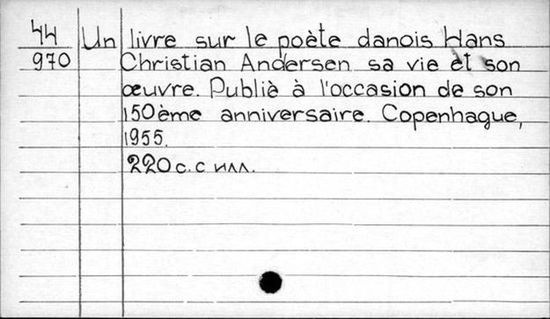 44 Un livre sur le poète danois Hans
970 Christian Andersen sa vie et son
œuvre. Publiè à l'occasion de son
150ème anniversaire. Copenhague,
1955.
220 с. с илл.